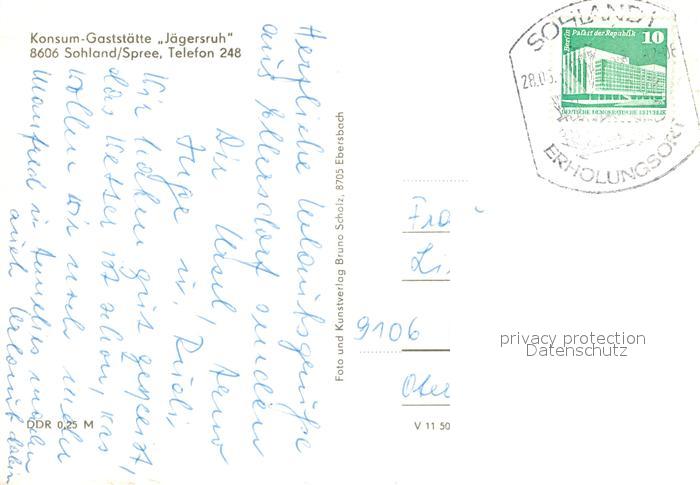 Konsum-Gaststätte „Jägersruh"
8606 Sohland/Spree, Telefon 248
Herzliche Urlaubsgrüße
aus Ebersdorf senden
Dir Ursel, Arno
Inge u. Rudi
Wir haben gut gespeist,
das Wetter ist schön, was
wollen wir noch mehr
Manfred u. Annelies machen
auch Urlaub
DDR 0,25 M
Foto und Kunstverlag Bruno Scholz, 8705 Ebersbach
V 11 50
SOHLAND 1
28.03.
ERHOLUNGSORT
Berlin Palast der Republik
10
DEUTSCHE DEMOKRATISCHE REPUBLIK
Fra
Li
9106
Ober
privacy protection
Datenschutz